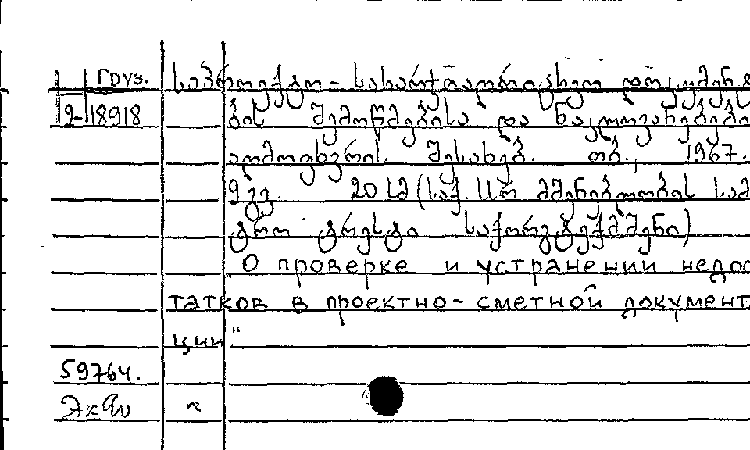 Груз. საპროექტო-სახარჯთაღრიცხვო დოკუმენტ
2-18918 ბის შემოწმებისა და ნაკლოვანებების
აღმოფხვრის შესახებ. თბ., 1967.
9 გვ. 20 სმ (საქ. სსრ მშენებლობის სამ
ტრო ტრესტი საქორგტექმშენი)
О проверке и устранении недос
татков в проектно-сметной документ
ции"
59764.